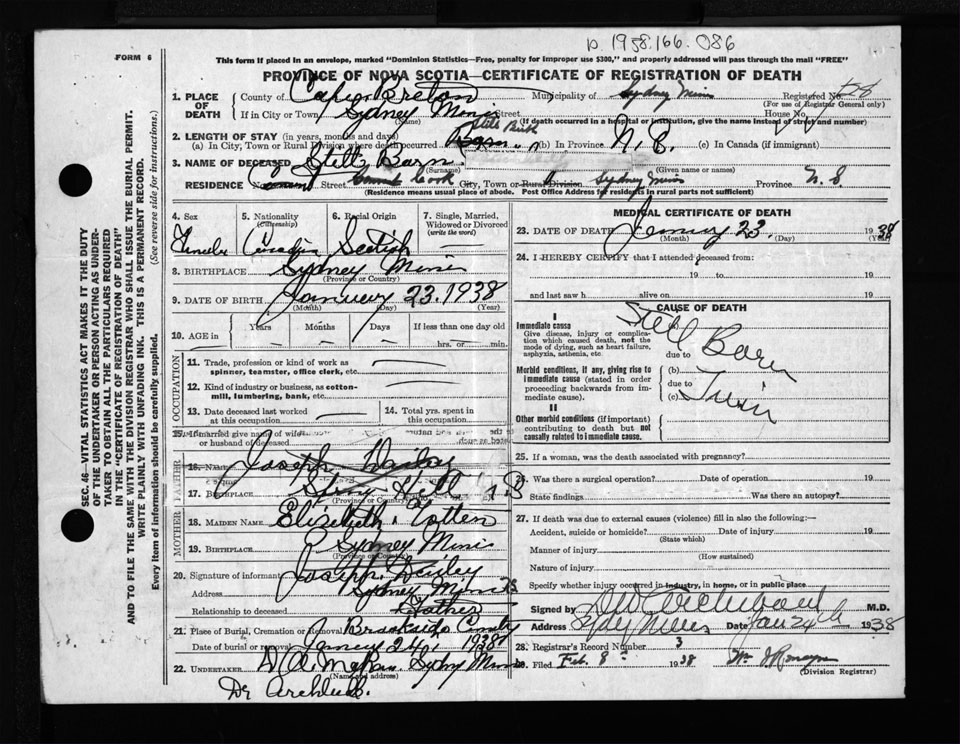 1938.166.086
FORM 6
This form if placed in an envelope, marked "Dominion Statistics—Free, penalty for improper use $300," and properly addressed will pass through the mail "FREE"
PROVINCE OF NOVA SCOTIA—CERTIFICATE OF REGISTRATION OF DEATH
1. PLACE OF DEATH County of Cape Breton Municipality of Sydney Mines Registered No.
(For use of Registrar General only)
If in City or Town Sydney Mines Street
(Name) (If death occurred in a hospital or institution, give the name instead of street and number)
2. LENGTH OF STAY (in years, months and days)
(a) In City, Town or Rural Division where death occurred Still Birth Born (b) In Province N.S. (c) In Canada (if immigrant)
3. NAME OF DECEASED Still Born
(Surname) (Given name or names)
RESIDENCE No. Street City, Town or Rural Division Sydney Mines Province N.S.
(Residence means usual place of abode. Post Office Address for residents in rural parts not sufficient)
4. Sex Female
5. Nationality (Citizenship) Canadian
6. Racial Origin Scotish
7. Single, Married, Widowed or Divorced (write the word) —
8. BIRTHPLACE Sydney Mines
(Province or Country)
9. DATE OF BIRTH January 23. 1938
(Month) (Day) (Year)
10. AGE in Years Months Days If less than one day old
hrs. or min.
OCCUPATION
11. Trade, profession or kind of work as spinner, teamster, office clerk, etc.
12. Kind of industry or business, as cotton-mill, lumbering, bank, etc.
13. Date deceased last worked at this occupation
14. Total yrs. spent in this occupation
15. If married give name of wife or husband of deceased
FATHER
16. NAME Joseph
17. BIRTHPLACE Spring Hill
(Province or Country)
MOTHER
18. MAIDEN NAME Elizabeth
19. BIRTHPLACE Sydney Mines
(Province or Country)
20. Signature of informant Joseph
Address Sydney Mines
Relationship to deceased Father
21. Place of Burial, Cremation or Removal Brookside
Date of burial or removal January 24, 1938
22. UNDERTAKER Sydney Mines
(Name and address)
MEDICAL CERTIFICATE OF DEATH
23. DATE OF DEATH January 23. 1938
(Month) (Day) (Year)
24. I HEREBY CERTIFY that I attended deceased from:
19 to 19
and last saw h alive on 19
CAUSE OF DEATH
I
Immediate cause
Give disease, injury or complication which caused death, not the mode of dying, such as heart failure, asphyxia, asthenia, etc.
Still Born
due to
Morbid conditions, if any, giving rise to immediate cause (stated in order proceeding backwards from immediate cause).
(b)
due to
(c) Twin
II
Other morbid conditions (if important) contributing to death but not causally related to immediate cause.
25. If a woman, was the death associated with pregnancy?
26. Was there a surgical operation? Date of operation 19
State findings Was there an autopsy?
27. If death was due to external causes (violence) fill in also the following:—
Accident, suicide or homicide? Date of injury 19
(State which)
Manner of injury
(How sustained)
Nature of injury
Specify whether injury occurred in industry, in home, or in public place
Signed by M.D.
Address Sydney Mines Date Jan 24th 1938
28. Registrar's Record Number 3
29. Filed Feb. 8 1938
(Division Registrar)
SEC. 46—VITAL STATISTICS ACT MAKES IT THE DUTY OF THE UNDERTAKER OR PERSON ACTING AS UNDERTAKER TO OBTAIN ALL THE PARTICULARS REQUIRED IN THE "CERTIFICATE OF REGISTRATION OF DEATH"
AND TO FILE THE SAME WITH THE DIVISION REGISTRAR WHO SHALL ISSUE THE BURIAL PERMIT.
WRITE PLAINLY WITH UNFADING INK. THIS IS A PERMANENT RECORD.
Every item of information should be carefully supplied. (See reverse side for instructions.)